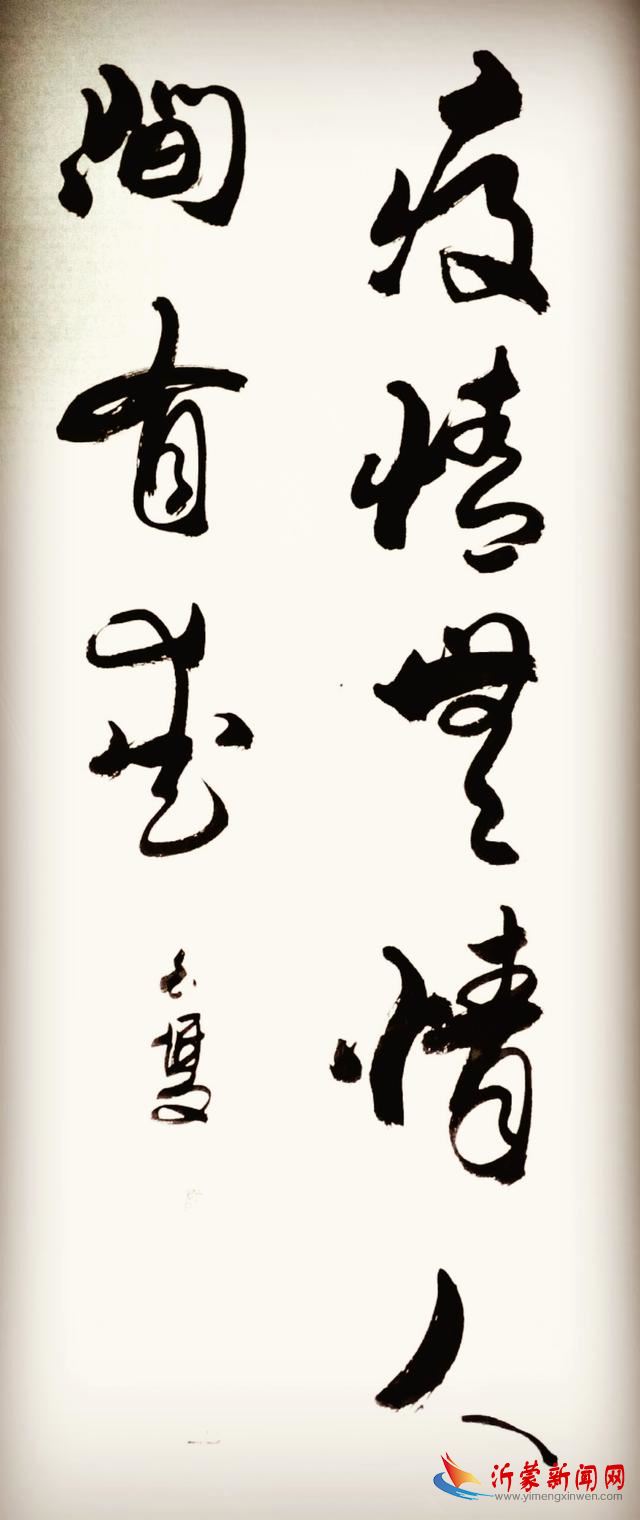 疫情無情人
間有愛
沂蒙新闻网
www.yimengxinwen.com